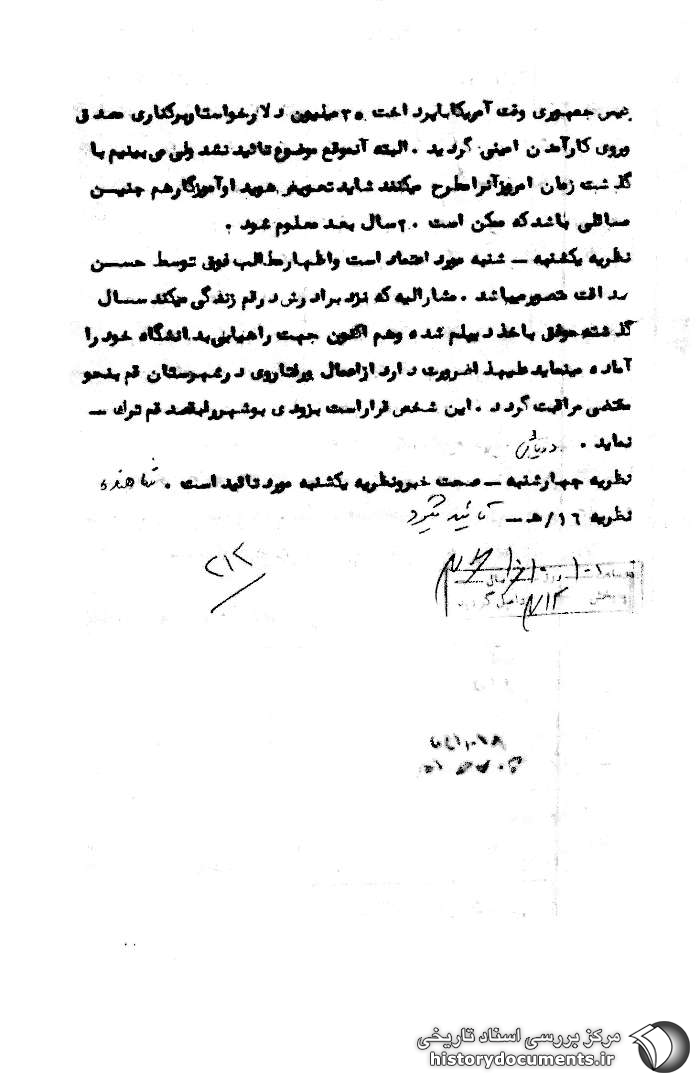 رئیس جمهوری وقت آمریکا با پرداخت ۳۵ میلیون دلار خواستار برکناری مصدق
وروی کارآمدن امینی گردید . البته آنموقع موضوع تائید نشد ولی می بینیم با
گذشت زمان امروز آنرا مطرح میکنند شاید تعویض هویدا و آموزگار هم چنین
مسائلی باشد که ممکن است ۲۰ سال بعد معلوم شود .
نظریه یکشنبه - شنبه مورد اعتماد است و اظهار مطالب فوق توسط حسن
صداقت متصور میباشد . مشارالیه که نزد برادرش در قم زندگی میکند سال
گذشته موفق باخذ دیپلم شده وهم اکنون جهت راهیابی بدانشگاه خود را
آماده مینماید علیهذا ضرورت دارد از اعمال ورفتاروی در شهرستان قم بنحو
مقتضی مراقبت گردد . این شخص قرار است بزودی بوشهر را بقصد قم ترک -
نماید .
نظریه چهارشنبه - صحت خبر و نظریه یکشنبه مورد تائید است .
نظریه ۱۶ / ه - تائید میگردد
۲۱۲
مرکز بررسی اسناد تاریخی
historydocuments.ir